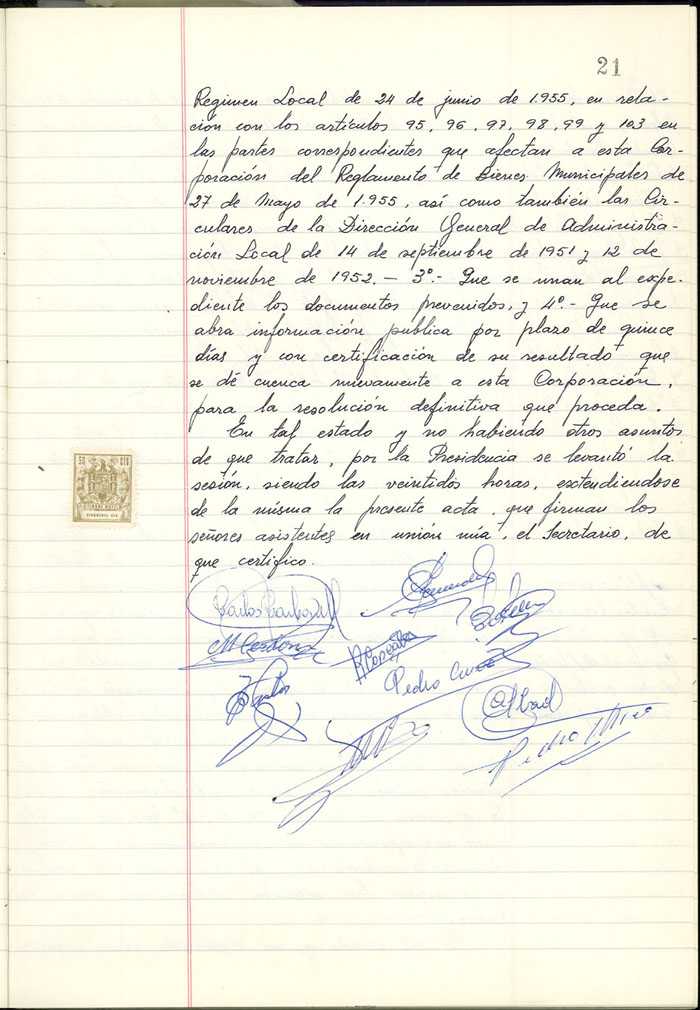 21
Regimen Local de 24 de junio de 1.955, en rela-
ción con los artículos 95, 96, 97, 98, 99 y 103 en
las partes correspondientes que afectan a esta Cor-
poración del Reglamento de Bienes Municipales de
27 de Mayo de 1.955, así como también las Cir-
culares de la Dirección General de Administra-
ción Local de 14 de septiembre de 1951 y 12 de
noviembre de 1952. — 3º.- Que se unan al expe-
diente los documentos prevenidos, y 4º.- Que se
abra información publica por plazo de quince
días y con certificación de su resultado que
se dé cuenta nuevamente a esta Corporación,
para la resolución definitiva que proceda.
En tal estado y no habiendo otros asuntos
de que tratar, por la Presidencia se levantó la
sesión, siendo las veintidos horas, extendiendose
de la misma la presente acta, que firman los
señores asistentes en unión mía, el Secretario, de
que certifico.
50 CTS
Carlos
Pedro
Pedro